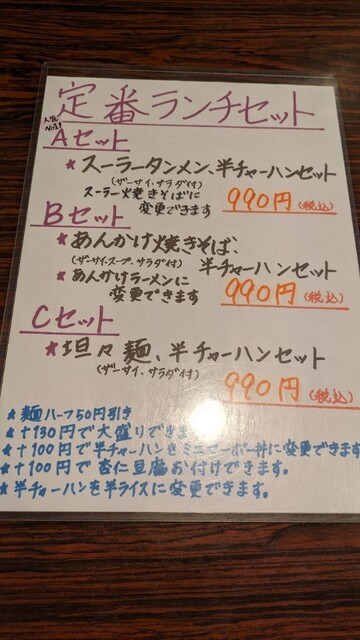 定番ランチセット
人気
No.1
Aセット
★スーラータンメン、半チャーハンセット
(ザーサイ、サラダ付)
スーラー火焼きそばに
変更できます
990円(税込)
Bセット
★あんかけ焼きそば、
(ザーサイ、スープ、サラダ付) 半チャーハンセット
★あんかけラーメンに
変更できます
990円(税込)
Cセット
★坦々麺、半チャーハンセット
(ザーサイ、サラダ付)
990円(税込)
★麺ハーフ50円引き
★+130円で大盛りできま
★+100円で半チャーハンをミニマーボー丼に変更できます
★+100円で杏仁豆腐お付けできます。
★半チャーハンを半ライスに変更できます。